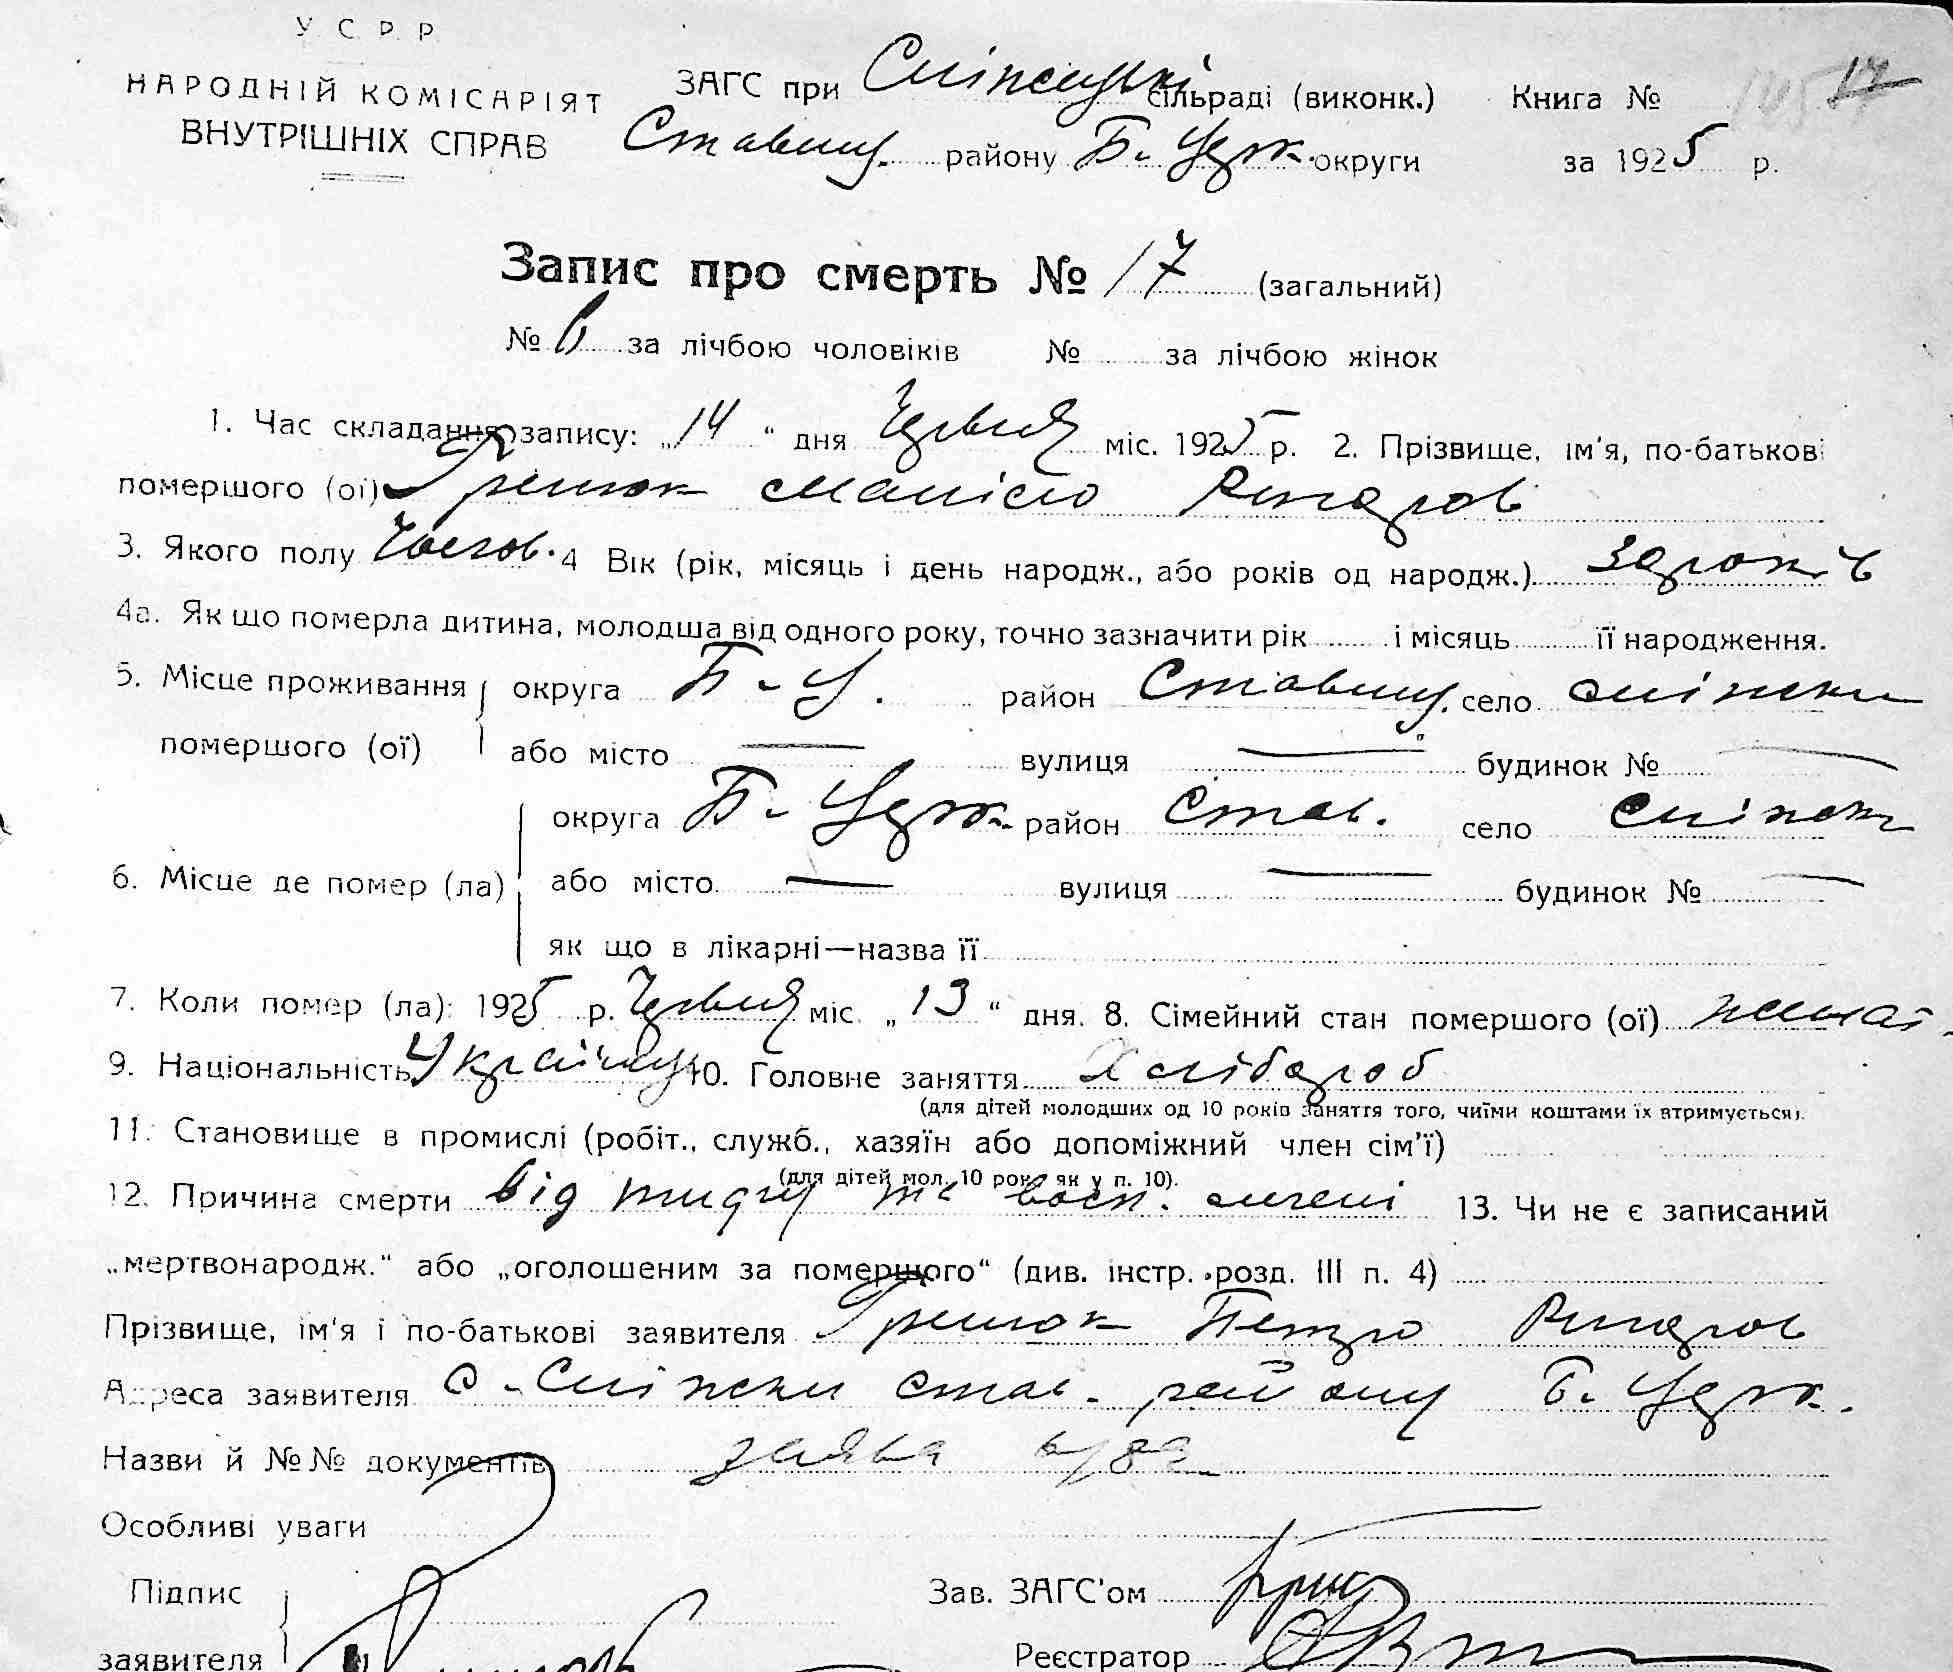 У. С. Р. Р.
НАРОДНІЙ КОМІСАРІЯТ
ВНУТРІШНІХ СПРАВ
ЗАГС при сільраді (виконк.) Книга № 17
Ставищ. району Б. Церк. округи за 1925 р.
Запис про смерть № 17 (загальний)
№ 6 за лічбою чоловіків № за лічбою жінок
1. Час складання запису: „14“ дня Червня міс. 1925 р. 2. Прізвище, ім'я, по-батькові
помершого (ої)
3. Якого полу Чолов. 4 Вік (рік, місяць і день народж., або років од народж.) років
4а. Як що померла дитина, молодша від одного року, точно зазначити рік і місяць її народження.
5. Місце проживання округа Б-Ц. район Ставищ. село
помершого (ої) або місто — вулиця — будинок № —
округа Б-Церк. район Став. село
6. Місце де помер (ла) або місто — вулиця — будинок № —
як що в лікарні—назва її
7. Коли помер (ла): 1925 р. Червня міс. „13“ дня. 8. Сімейний стан помершого (ої)
9. Національність Українц 10. Головне заняття Хлібороб
(для дітей молодших од 10 років заняття того, чиїми коштами їх втримується).
11. Становище в промислі (робіт., служб., хазяїн або допоміжний член сім'ї)
(для дітей мол. 10 рок. як у п. 10).
12. Причина смерти від тифу та восп. легені 13. Чи не є записаний
„мертвонародж.“ або „оголошеним за померщого“ (див. інстр. розд. III п. 4)
Прізвище, ім'я і по-батькові заявителя Петро
Адреса заявителя с. Став. району Б. Церк.
Назви й №№ документів заява
Особливі уваги
Підпис
заявителя
Зав. ЗАГС'ом
Реєстратор